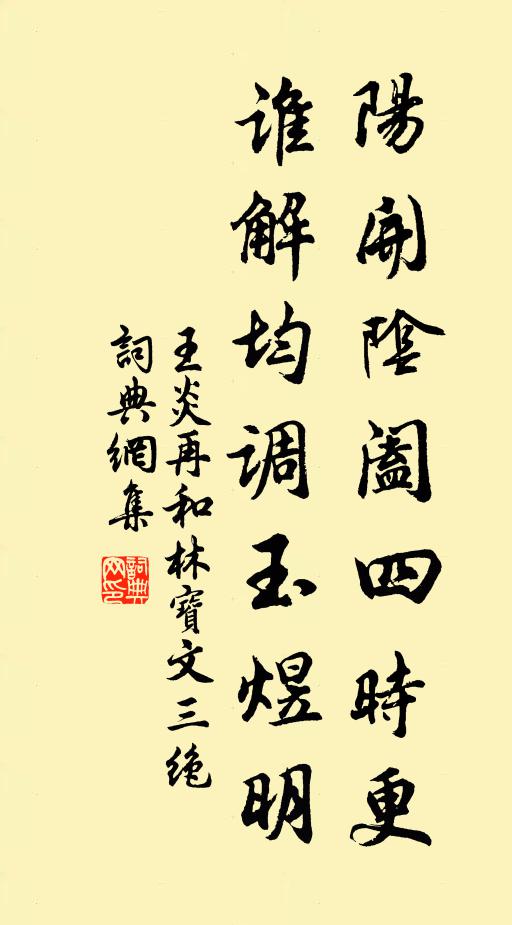 陽開陰闔四時更
誰解均調玉煜明
王炎再和林寶文三絶
詞典網集
詞典網印